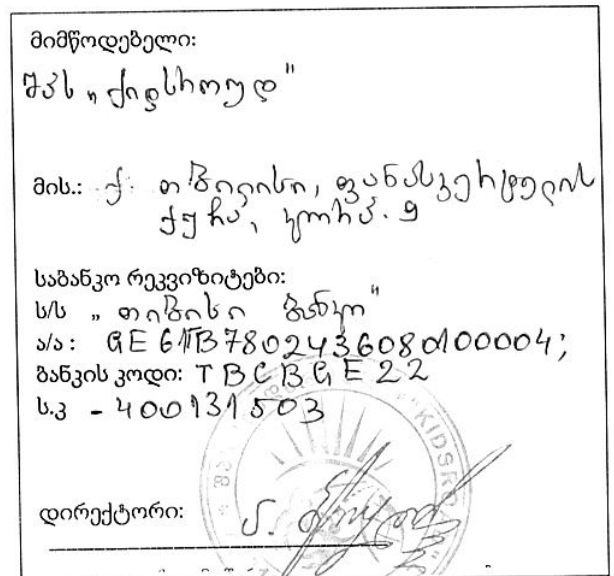 მიმწოდებელი:
შპს „ქიდსროუდ"
მის.: ქ. თბილისი, ფანასკერტელის
ქუჩა, კორპ. 9
საბანკო რეკვიზიტები:
ს/ს „ თიბისი ბანკი"
ა/ა: GE61TB7802436080100004;
ბანკის კოდი: TBCBGE22
ს.კ - 400131503
დირექტორი: